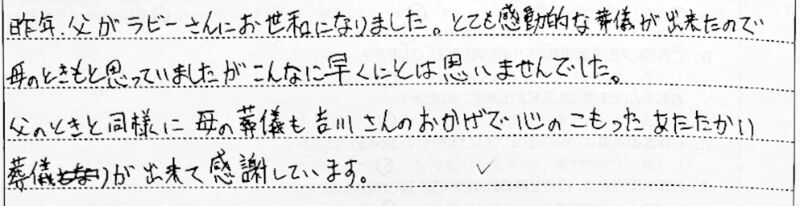 昨年、父がラビーさんにお世和になりました。とても感動的な葬儀が出来たので
母のときもと思っていましたがこんなに早くにとは思いませんでした。
父のときと同様に母の葬儀も吉川さんのおかげで心のこもったあたたかい
葬儀が出来て感謝しています。